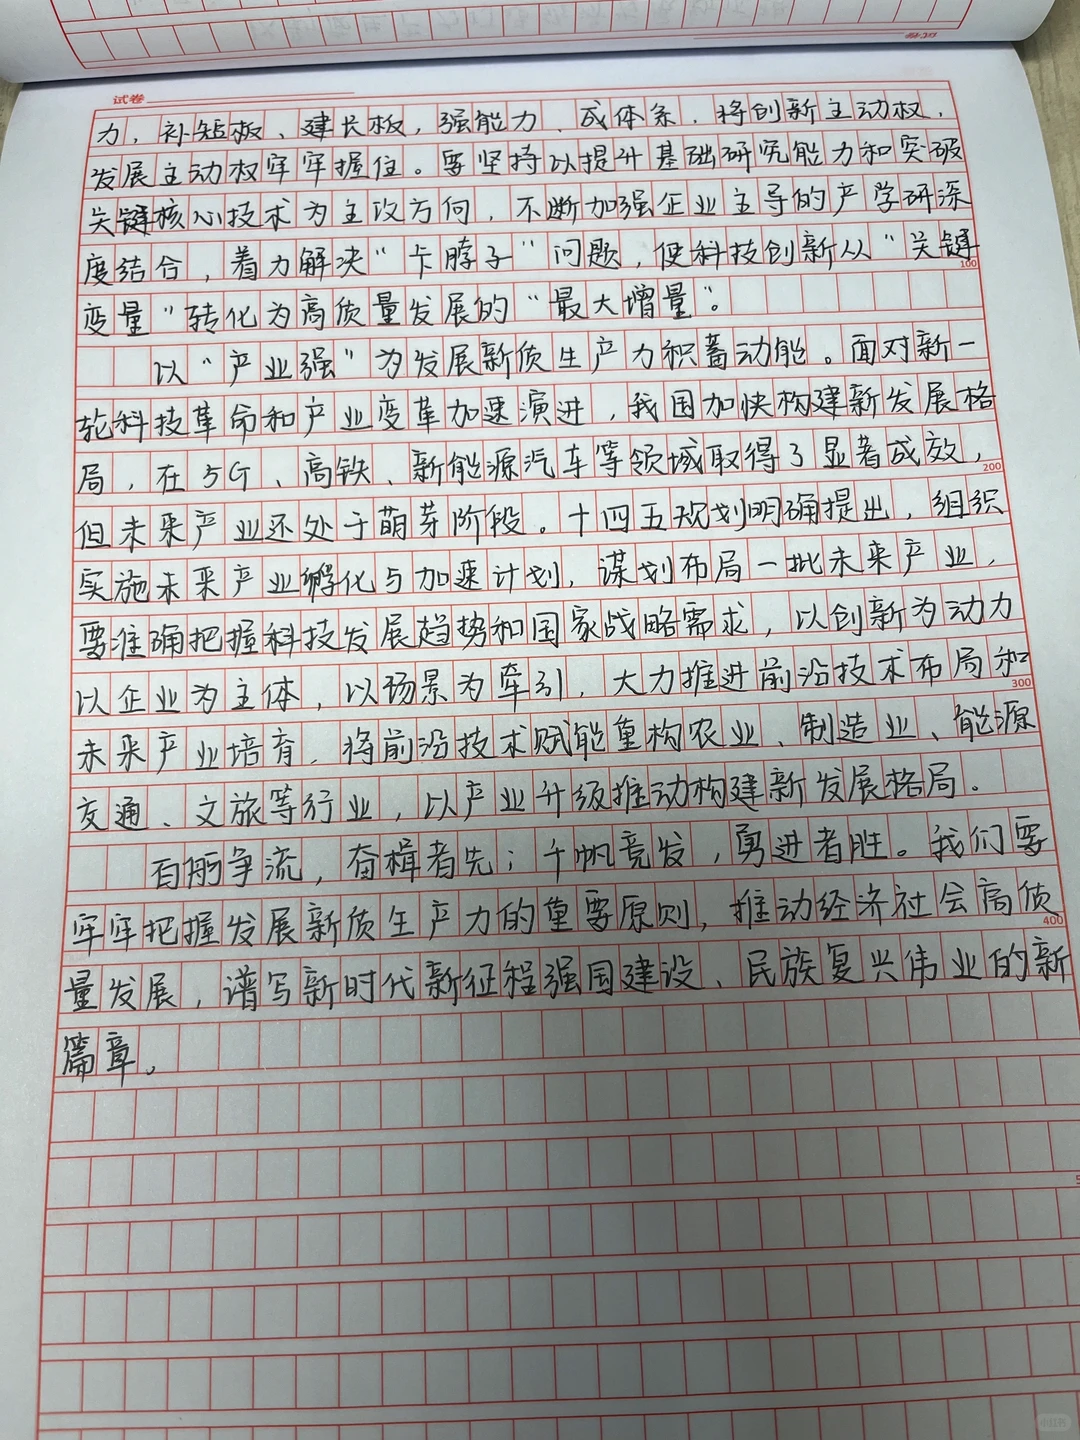 试卷
力，补短板、建长板，强能力、成体系，将创新主动权，
发展主动权牢牢握住。要坚持以提升基础研究能力和突破
关键核心技术为主攻方向，不断加强企业主导的产学研深
度结合，着力解决“卡脖子”问题，使科技创新从“关键
100
变量”转化为高质量发展的“最大增量”。
以“产业强”为发展新质生产力积蓄动能。面对新一
轮科技革命和产业变革加速演进，我国加快构建新发展格
局，在5G、高铁、新能源汽车等领域取得了显著成效，
200
但未来产业还处于萌芽阶段。十四五规划明确提出，组织
实施未来产业孵化与加速计划，谋划布局一批未来产业，
要准确把握科技发展趋势和国家战略需求，以创新为动力
以企业为主体，以场景为牵引，大力推进前沿技术布局和
300
未来产业培育，将前沿技术赋能重构农业、制造业、能源
交通、文旅等行业，以产业升级推动构建新发展格局。
百舸争流，奋楫者先；千帆竞发，勇进者胜。我们要
牢牢把握发展新质生产力的重要原则，推动经济社会高质
400
量发展，谱写新时代新征程强国建设、民族复兴伟业的新
篇章。
小红书